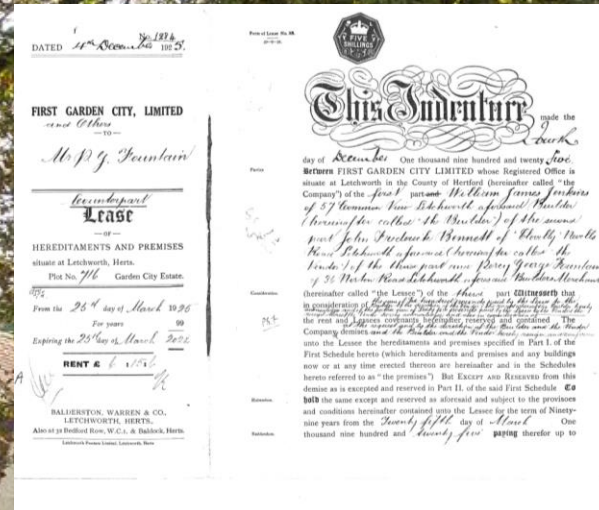 No. 1274
DATED 4th December 1925.
FIRST GARDEN CITY, LIMITED
and Others
— TO —
Mr P. G. Fountain
Counterpart
Lease
— OF —
HEREDITAMENTS AND PREMISES
situate at Letchworth, Herts.
Plot No. 716 Garden City Estate.
From the 25th day of March 1925
For years 99
Expiring the 25th day of March 2024
RENT £ 6
BALDERSTON, WARREN & CO.,
LETCHWORTH, HERTS.
Also at 32 Bedford Row, W.C.1. & Baldock, Herts.
Form of Lease No.
FIVE
SHILLINGS
This Indenture made the
Fourth
day of December One thousand nine hundred and twenty five
Parties
Between FIRST GARDEN CITY LIMITED whose Registered Office is
situate at Letchworth in the County of Hertford (hereinafter called "the
Company") of the first part and William James Jenkins
of 57 Common View Letchworth aforesaid Builder
(hereinafter called "the Builder") of the second
part John Frederick Bennett of Nevells
Road Letchworth aforesaid (hereinafter called the
Vendor) of the third part and Percy George Fountain
of 36 Norton Road Letchworth aforesaid Builders Merchant
Consideration
(hereinafter called "the Lessee") of the part Witnesseth that
in consideration of
the rent and Lessees covenants hereinafter reserved and contained The
Company demises
unto the Lessee the hereditaments and premises specified in Part I. of the
First Schedule hereto (which hereditaments and premises and any buildings
now or at any time erected thereon are hereinafter and in the Schedules
hereto referred to as "the premises") But EXCEPT AND RESERVED from this
demise as is excepted and reserved in Part II. of the said First Schedule To
Habendum
hold the same except and reserved as aforesaid and subject to the provisoes
and conditions hereinafter contained unto the Lessee for the term of Ninety-
nine years from the Twenty fifth day of March One
Reddendum
thousand nine hundred and twenty five paying therefor up to